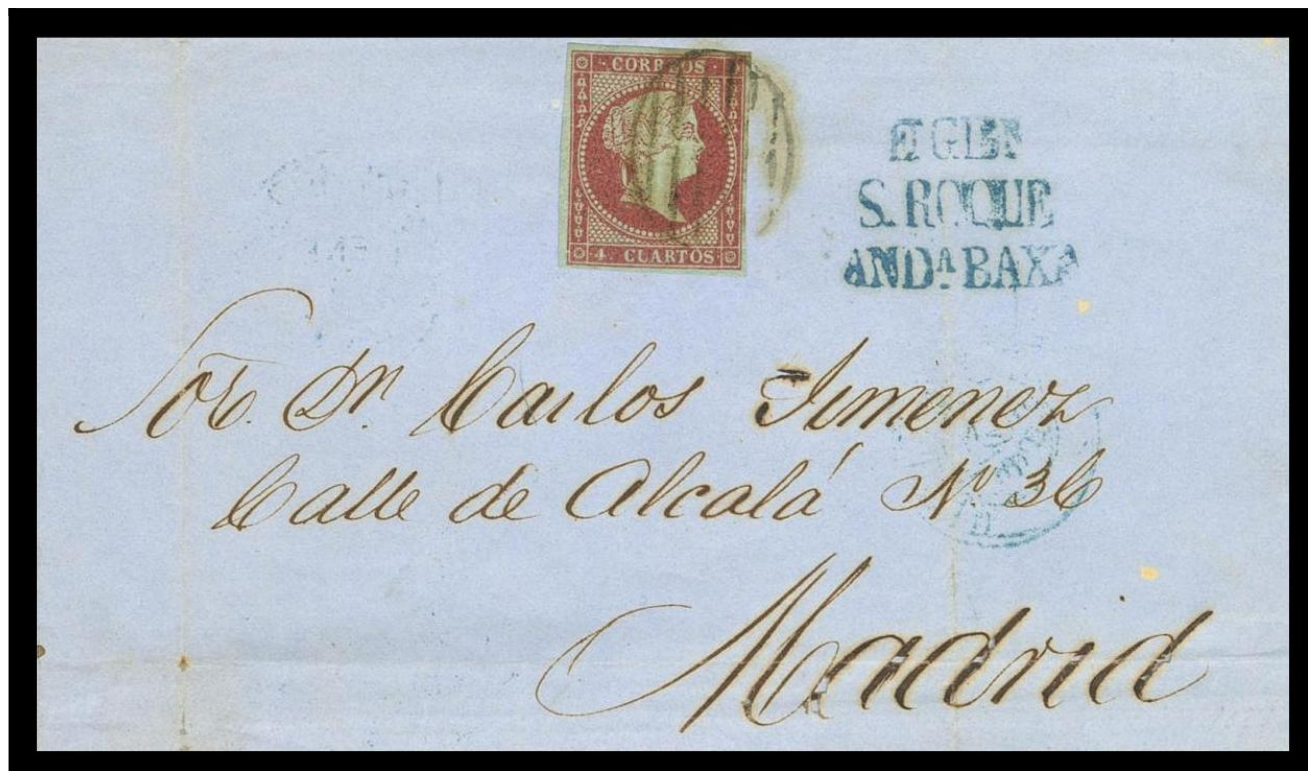 CORREOS
4 CUARTOS
S. ROQUE
ANDA. BAXA
Sor. Dn Carlos Jimenez
Calle de Alcalá No 36
Madrid